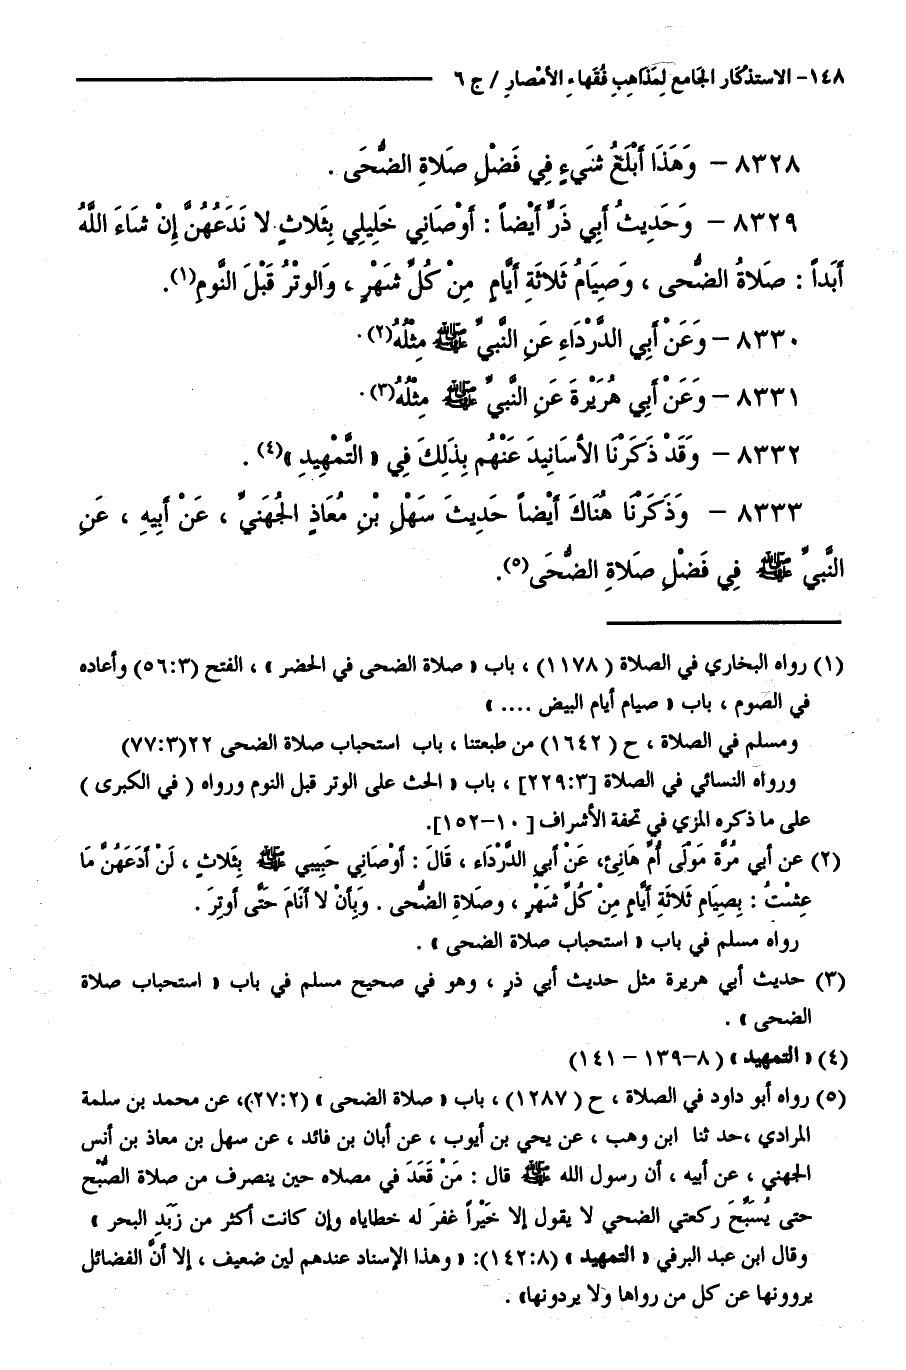 ١٤٨- الاستذكار الجَامع لِمَذاهِبِ فُقَهاءِ الأمْصارِ / ج ٦
٨٣٢٨ – وَهَذَا أَبْلَغُ شَيْءٍ فِي فَضْلِ صَلَاةِ الضُّحَى .
٨٣٢٩ – وَحَدِيثُ أبي ذَرٍّ أَيْضاً : أَوْصَانِي خَلِيلِي بِثَلَاثٍ لا نَدَعُهُنَّ إِنْ شَاءَ اللَّهُ
أَبَداً : صَلَاةُ الضُّحى ، وَصِيَامُ ثَلاثَةِ أَيَّامٍ مِنْ كُلِّ شَهْرٍ ، وَالوتْرُ قَبْلَ النَّومِ(١).
٨٣٣٠ – وَعَنْ أبي الدَّرْدَاءِ عَنِ النَّبِيِّ ﷺ مِثْلُهُ(٢).
٨٣٣١ – وَعَنْ أبي هُرَيْرَةَ عَنِ النَّبِيِّ ﷺ مِثْلُهُ(٣).
٨٣٣٢ – وَقَدْ ذَكَرْنَا الأسَانِيدَ عَنْهُم بِذَلِكَ فِي « التَّمْهِيدِ »(٤) .
٨٣٣٣ – وَذَكَرْنَا هُنَاكَ أَيْضاً حَدِيثَ سَهْلِ بْنِ مُعَاذٍ الجُهَنِيِّ ، عَنْ أَبِيهِ ، عَنِ
النَّبِيِّ ﷺ فِي فَضْلِ صَلَاةِ الضُّحَى(٥).
(١) رواه البخاري في الصلاة ( ١١٧٨) ، باب « صلاة الضحى في الحضر » ، الفتح (٥٦:٣) وأعاده
في الصوم ، باب « صيام أيام البيض .... »
ومسلم في الصلاة ، ح ( ١٦٤٢) من طبعتنا ، باب استحباب صلاة الضحى ٢٢(٧٧:٣)
ورواه النسائي في الصلاة [٢٢٩:٣] ، باب « الحث على الوتر قبل النوم ورواه ( في الكبرى )
على ما ذكره المزي في تحفة الأشراف [ ١٠–١٥٢].
(٢) عن أبي مُرَّة مَوْلَى أُمِّ هَانِئ، عَنْ أبي الدَّرْدَاء ، قَالَ : أَوْصَانِي حَبِيبِي ﷺ بِثَلاثٍ ، لَنْ أَدَعَهُنَّ مَا
عِشْتُ : بِصِيَامِ ثَلاثَةِ أَيَّامٍ مِنْ كُلِّ شَهْرٍ ، وصَلاةِ الضُّحى . وَبِأَنْ لا أَنَامَ حَتَّى أُوتِرَ .
رواه مسلم في باب « استحباب صلاة الضحى » .
(٣) حديث أبي هريرة مثل حديث أبي ذر ، وهو في صحيح مسلم في باب « استحباب صلاة
الضحى » .
(٤) « التمهيد » ( ٨–١٣٩ – ١٤١)
(٥) رواه أبو داود في الصلاة ، ح ( ١٢٨٧) ، باب « صلاة الضحى » (٢٧:٢)، عن محمد بن سلمة
المرادي ،حد ثنا ابن وهب ، عن يحي بن أيوب ، عن أبان بن فائد ، عن سهل بن معاذ بن أنس
الجهني ، عن أبيه ، أن رسول الله ﷺ قال : مَنْ قَعَدَ في مصلاه حين ينصرف من صلاة الصُّبْح
حتى يُسَبِّحَ ركعتي الضحي لا يقول إلا خَيْراً غفرَ له خطاياه وإن كانت أكثر من زَبَدِ البحر »
وقال ابن عبد البرفي « التمهيد » (١٤٢:٨): « وهذا الإسناد عندهم لين ضعيف ، إلا أنَّ الفضائل
يروونها عن كل من رواها ولا يردونها» .